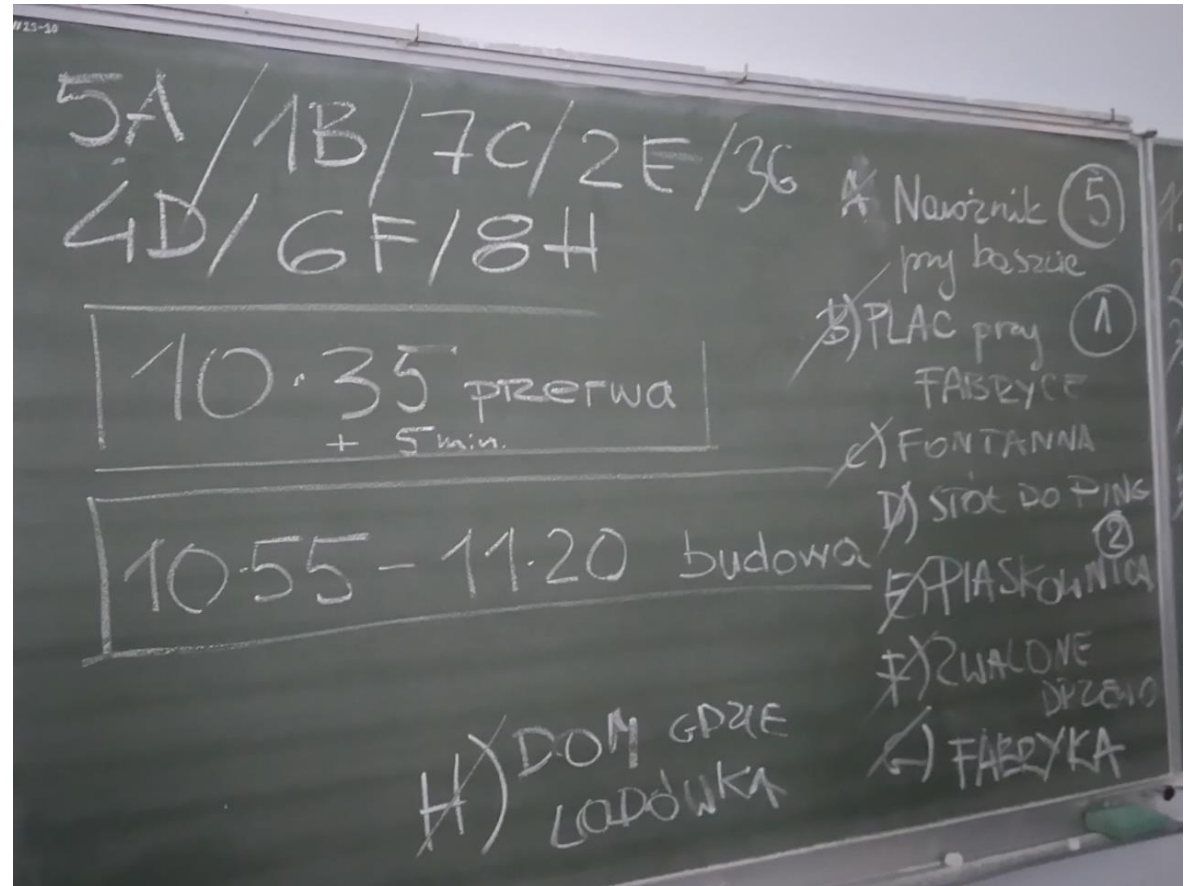 5A / 1B / 7C / 2E / 3G
4D / 6F / 8H
10.35 przerwa
+ 5 min.
10.55 - 11.20 budowa
A Narożnik 5
przy baszcie
B) PLAC przy 1
FABRYCE
C) FONTANNA
D) STÓŁ DO PING
2
E) PIASKOWNICA
F) ZWALONE
DRZEWO
G) FABRYKA
H) DOM GDZIE
LODÓWKA